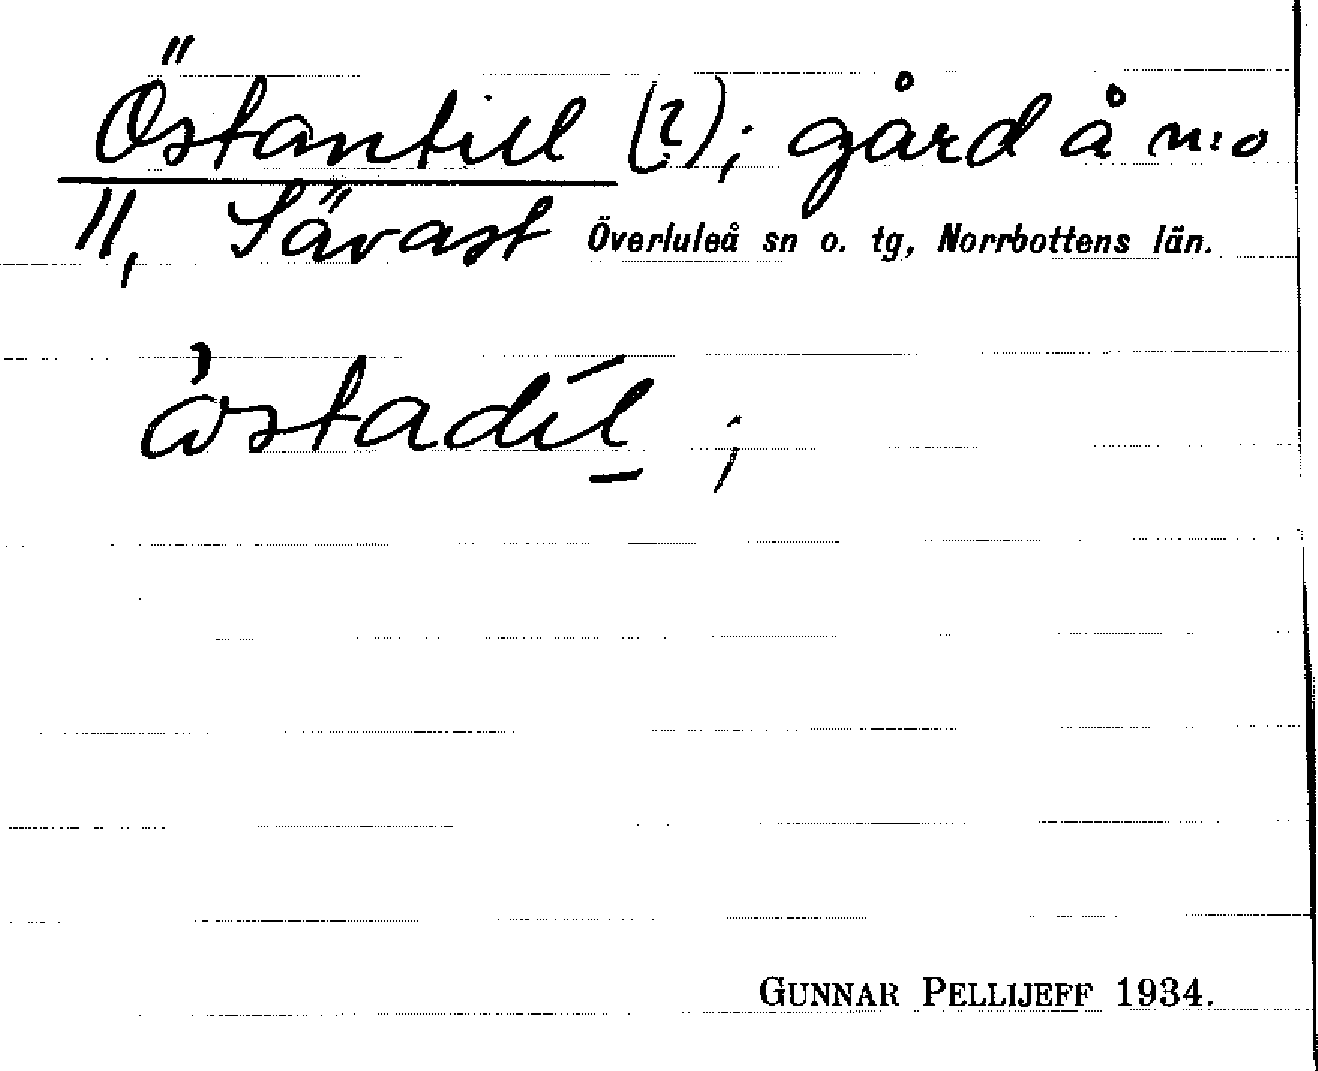 Östantill (?); gård å n:o
11, Sävast Överluleå sn o. tg, Norrbottens län.
òstadíl ;
GUNNAR PELLIJEFF 1934.